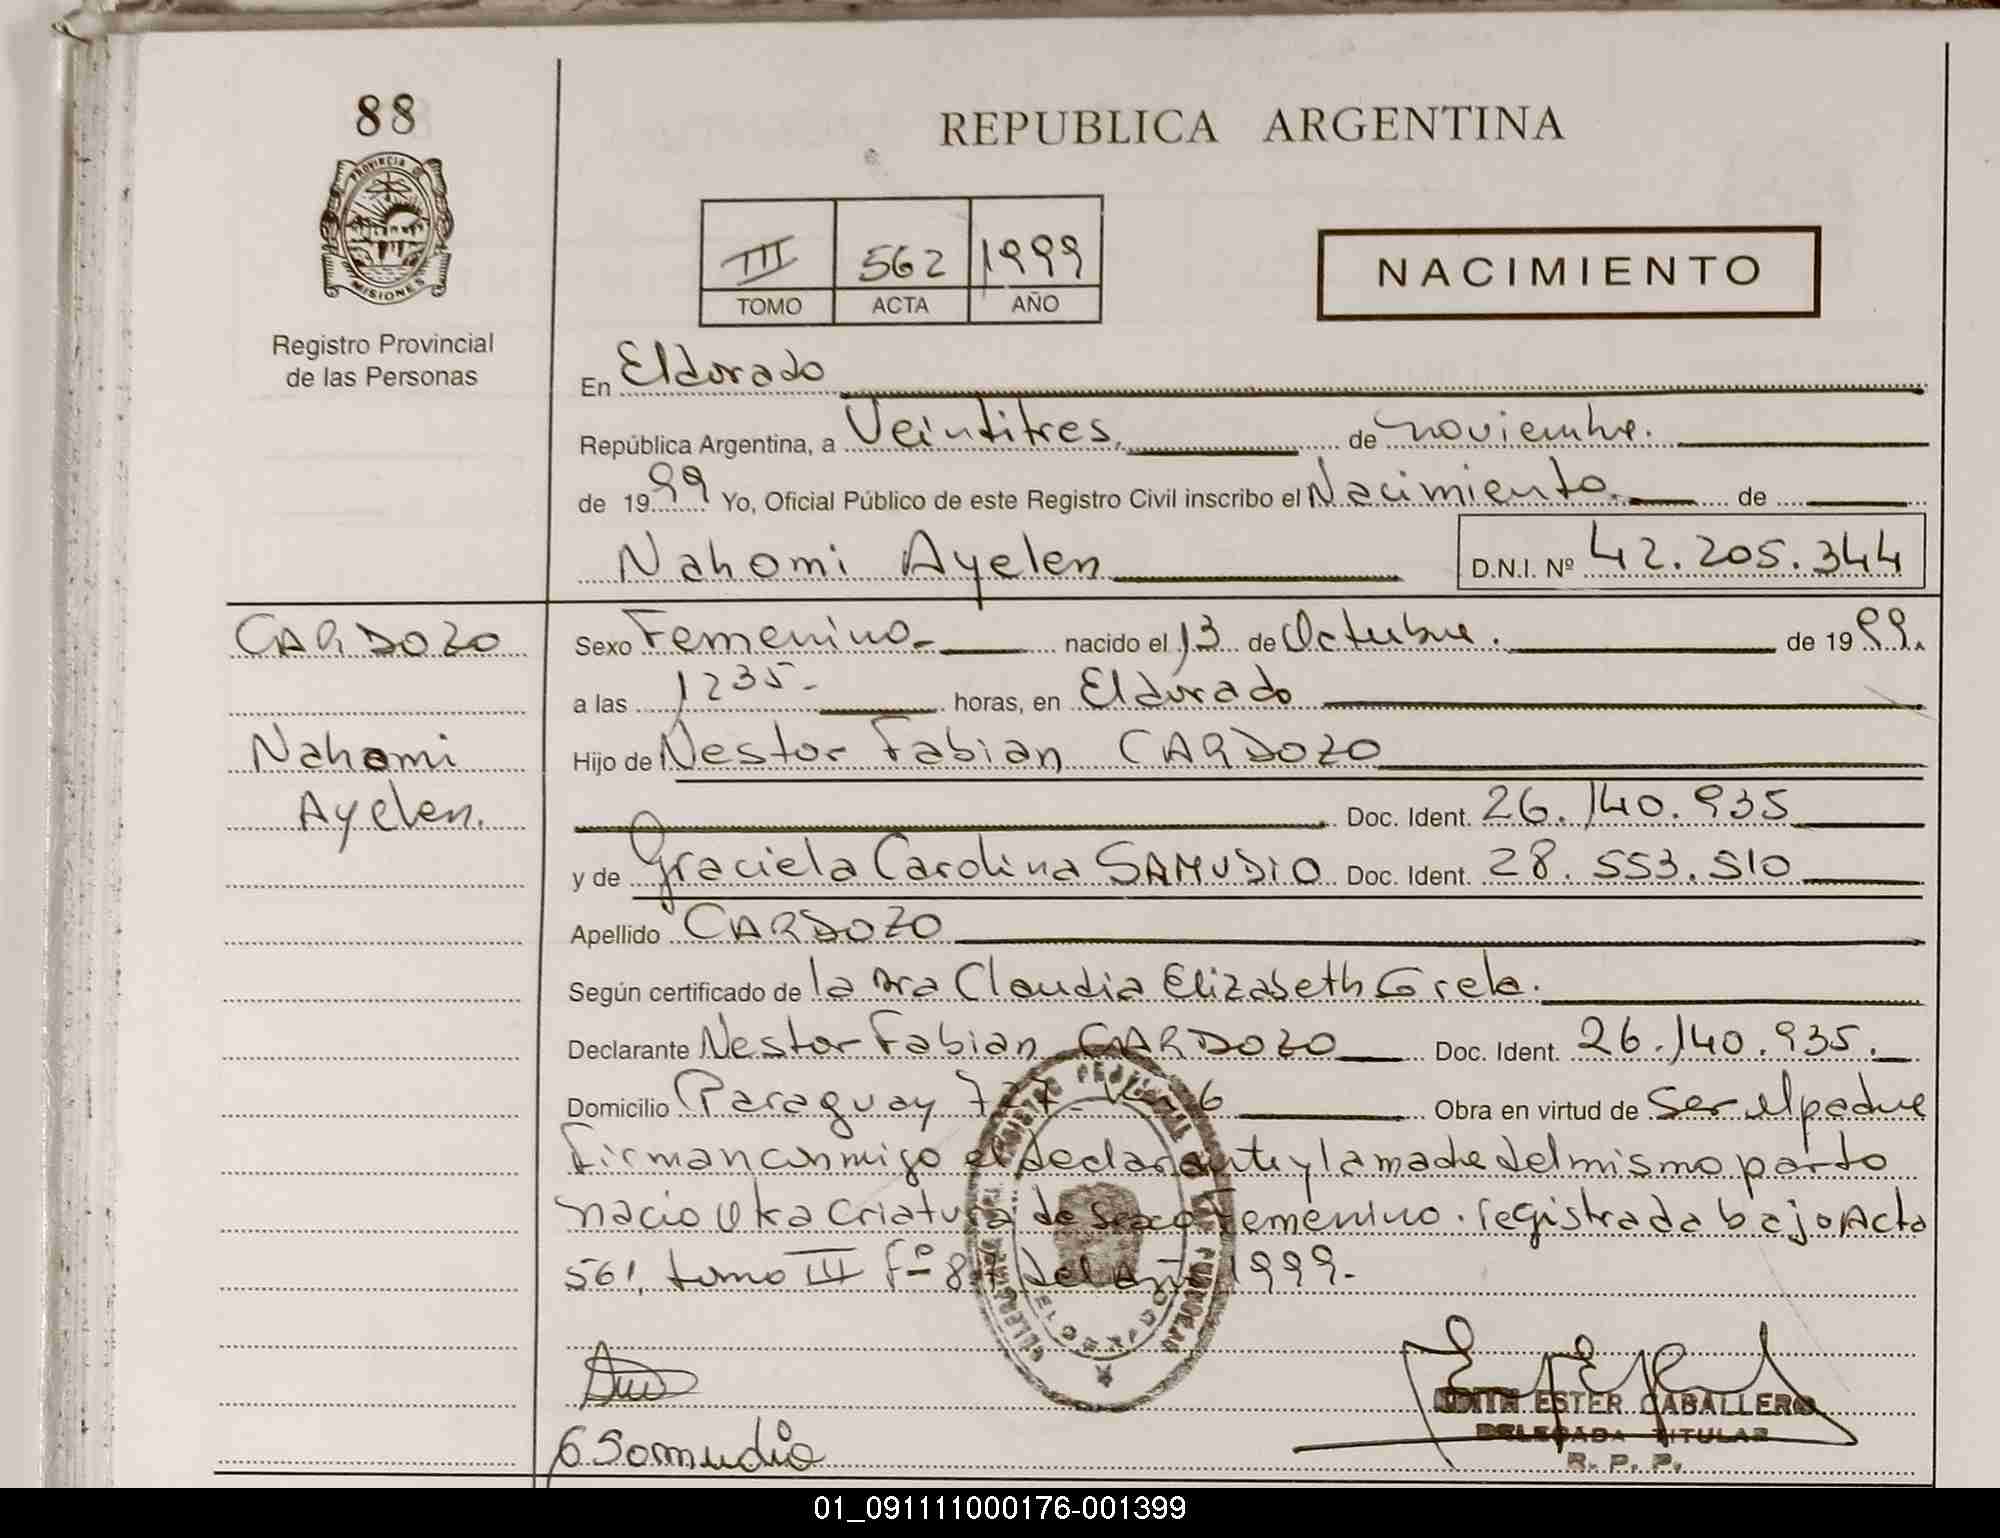 88
PROVINCIA D
MISIONES
Registro Provincial
de las Personas
REPUBLICA ARGENTINA
III 562 1999
TOMO ACTA AÑO
NACIMIENTO
En Eldorado
República Argentina, a Veintitres, de noviembre.
de 1999 Yo, Oficial Público de este Registro Civil inscribo el Nacimiento. de
Nahomi Ayelen D.N.I. Nº 42.205.344
CARDOZO
Nahomi
Ayelen.
Sexo Femenino- nacido el 13 de Octubre. de 1999.
a las 1235- horas, en Eldorado
Hijo de Nestor Fabian CARDOZO
Doc. Ident. 26.140.935
y de Graciela Carolina SAMUDIO Doc. Ident. 28.553.510
Apellido CARDOZO
Según certificado de la Dra Claudia Elizabeth Grela.
Declarante Nestor Fabian CARDOZO Doc. Ident. 26.140.935.
Domicilio Paraguay 727- 6 Obra en virtud de Ser el padre
Firman conmigo el declarante y la madre del mismo parto
nacio otra criatura de sexo Femenino. registrada bajo Acta
561, tomo III fº 87 del año 1999-
REGISTRO PROVINCIAL DE LAS PERSONAS
ELDORADO
GSamudio
EDITH ESTER CABALLERO
DELEGADA TITULAR
R. P. P.
01_091111000176-001399